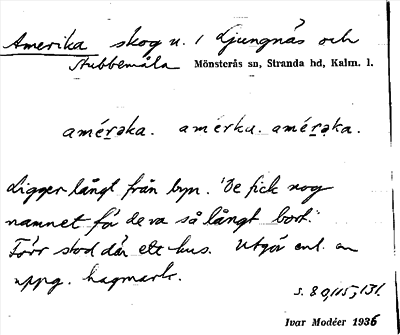 Amerika skog u. / Ljungnäs och
Stubbemåla Mönsterås sn, Stranda hd, Kalm. l.
amérəka. amerku. amérəka.
Ligger långt från byn. 'De fick nog
namnet få de va så långt bort.'
Förr stod där ett hus. Utgör enl. en
uppg. hagmark.
s. 80, 115, 131.
Ivar Modéer 1936